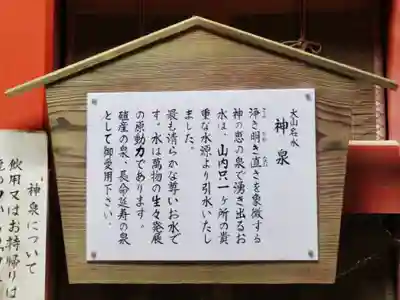 大山名水
神泉
浄き明き直さを象徴する
神の恵の泉で湧き出るお
水は、山内只一ヶ所の貴
重な水源より引水いたし
ました。
最も清らかな尊いお水で
す。水は萬物の生々発展
の原動力であります。
殖産の泉・長命延寿の泉
として御愛用下さい。
神泉について
飲用又はお持帰りは